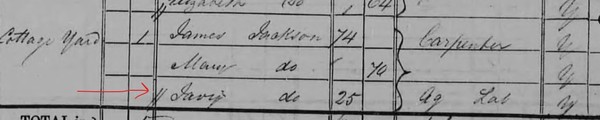 Elizabeth Do 64
Cottage Yard 1 James Jackson 74 Carpenter Y
Mary do 70 Y
do 25 Ag Lab Y
TOTAL in